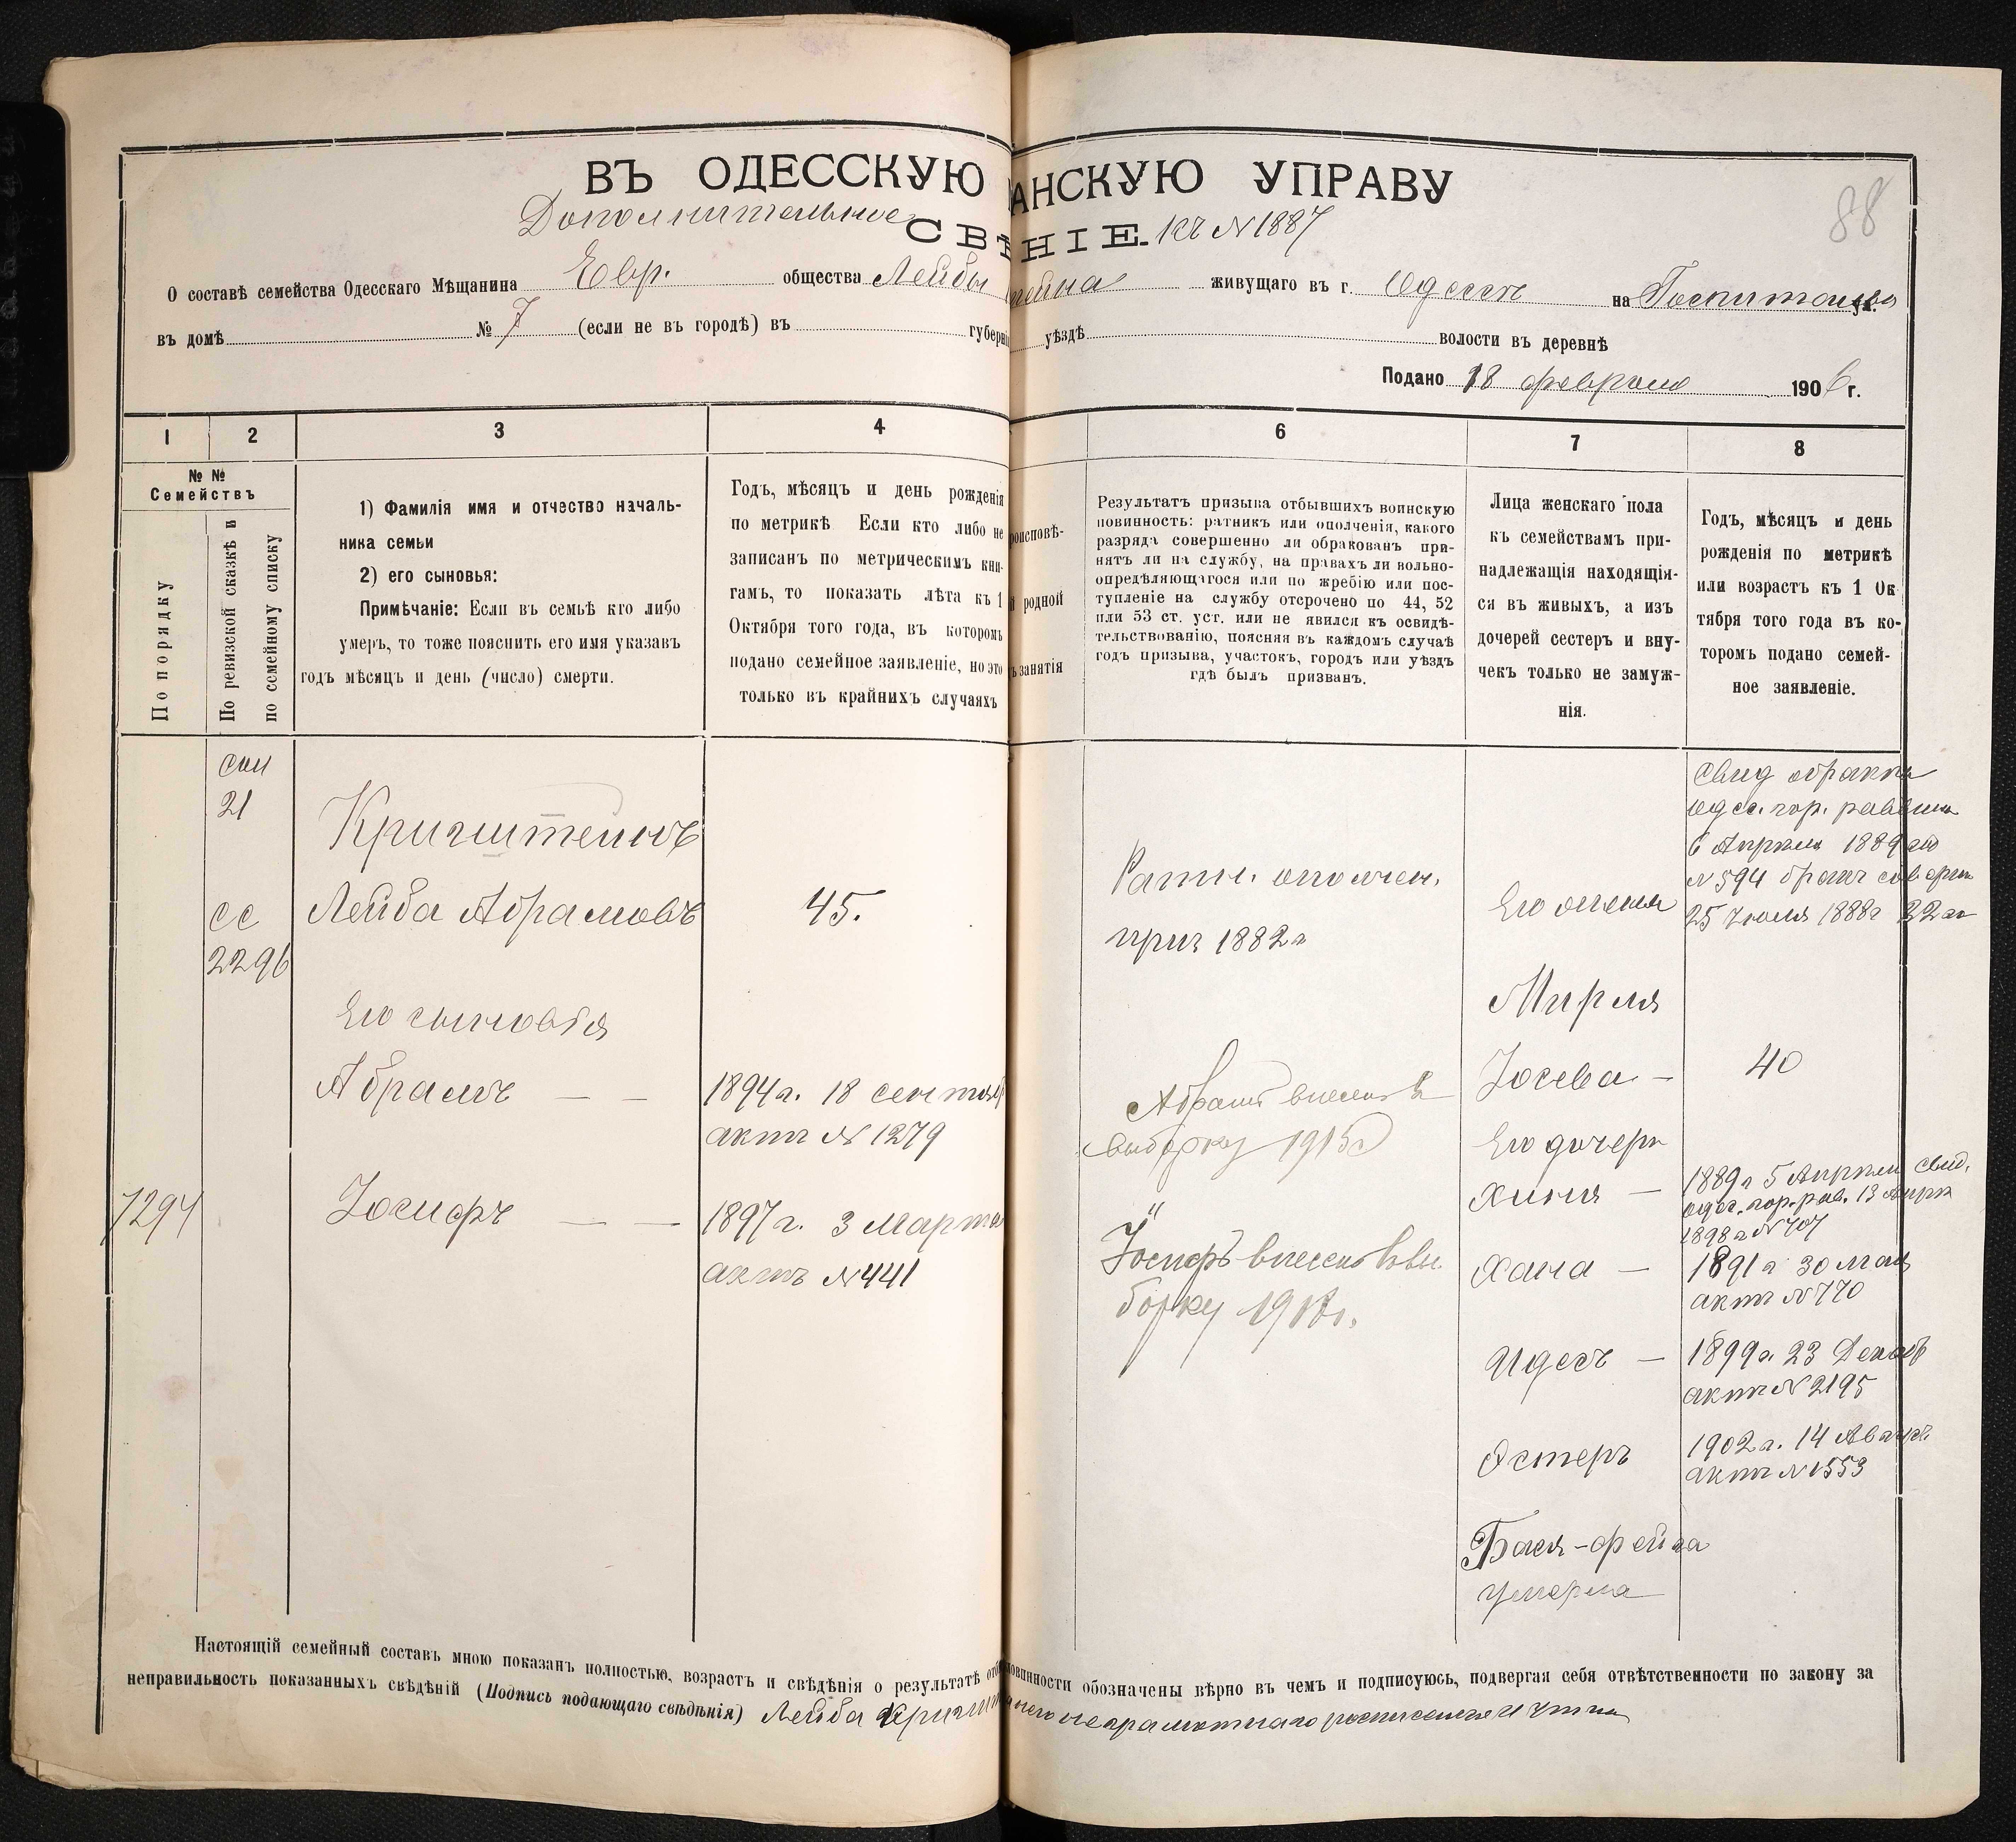 ВЪ ОДЕССКУЮ АНСКУЮ УПРАВУ
88
Дополнительное
СВѢ НІЕ. къ N 1887
О составѣ семейства Одесскаго Мѣщанина Евр. общества Лейбы тейна живущаго въ г. Одессѣ на ул.
въ домѣ № 7 (если не въ городѣ) въ губерні уѣздѣ волости въ деревнѣ
Подано 18 февраля 1906 г.
1 2 3 4 6 7 8
№ №
Семействъ
По порядку
По ревизской сказкѣ и
по семейному списку
1) Фамилія имя и отчество началь-
ника семьи
2) его сыновья:
Примѣчаніе: Если въ семьѣ кто либо
умеръ, то тоже пояснить его имя указавъ
годъ мѣсяцъ и день (число) смерти.
Годъ, мѣсяцъ и день рожденія
по метрикѣ Если кто либо не
записанъ по метрическимъ кни-
гамъ, то показать лѣта къ 1
Октября того года, въ которомъ
подано семейное заявленіе, но это
только въ крайнихъ случаяхъ
роисповѣ-
й родной
ъ занятія
Результатъ призыва отбывшихъ воинскую
повинность: ратникъ или ополченія, какого
разряда совершенно ли обракованъ при-
нятъ ли на службу, на правахъ ли вольно-
опредѣляющагося или по жребію или пос-
тупленіе на службу отсрочено по 44, 52
или 53 ст. уст. или не явился къ освидѣ-
тельствованію, поясняя въ каждомъ случаѣ
годъ призыва, участокъ, городъ или уѣздъ
гдѣ былъ призванъ.
Лица женскаго пола
къ семействамъ при-
надлежащія находящія-
ся въ живыхъ, а изъ
дочерей сестеръ и вну-
чекъ только не замуж-
нія.
Годъ, мѣсяцъ и день
рожденія по метрикѣ
или возрастъ къ 1 Ок
тября того года въ ко-
торомъ подано семей-
ное заявленіе.
21
Кригштейнъ
сс
2296
Лейба Абрамовъ
45.
Его сыновья
Абрамъ — —
1894г. 18 сентяб
актъ N 1279
7294
Іосифъ — —
1897г. 3 Марта
актъ N 441
Ратн. ополчен.
приз 1882г
Абрамъ внесенъ в
выборку 1915г
Іосифъ внесенъ в вы
борку
Его жена
Мирля
Іосева —
Его дочери
Хиня —
Хана —
Идесъ —
Эстеръ
Бася-Фейга
умерла
Свид о бракѣ
одес. гор. раввина
6 Апреля 1889
N 594 бракъ соверш
25 Іюля 1888г
40
1889г 5 Апреля свид.
одес. гор. рав. 13 Апрл
1898г N 707
1891г 30 мая
актъ N 770
1899г. 23 Декаб
актъ N 2195
1902г. 14 Август
актъ N 1553
Настоящій семейный составъ мною показанъ полностью, возрастъ и свѣдѣнія о результатѣ отб овинности обозначены вѣрно въ чемъ и подписуюсь, подвергая себя отвѣтственности по закону за
неправильность показанныхъ свѣдѣній (Подпись подающаго свѣдѣнія) Лейба Кригшт него неграмотнаго росписался